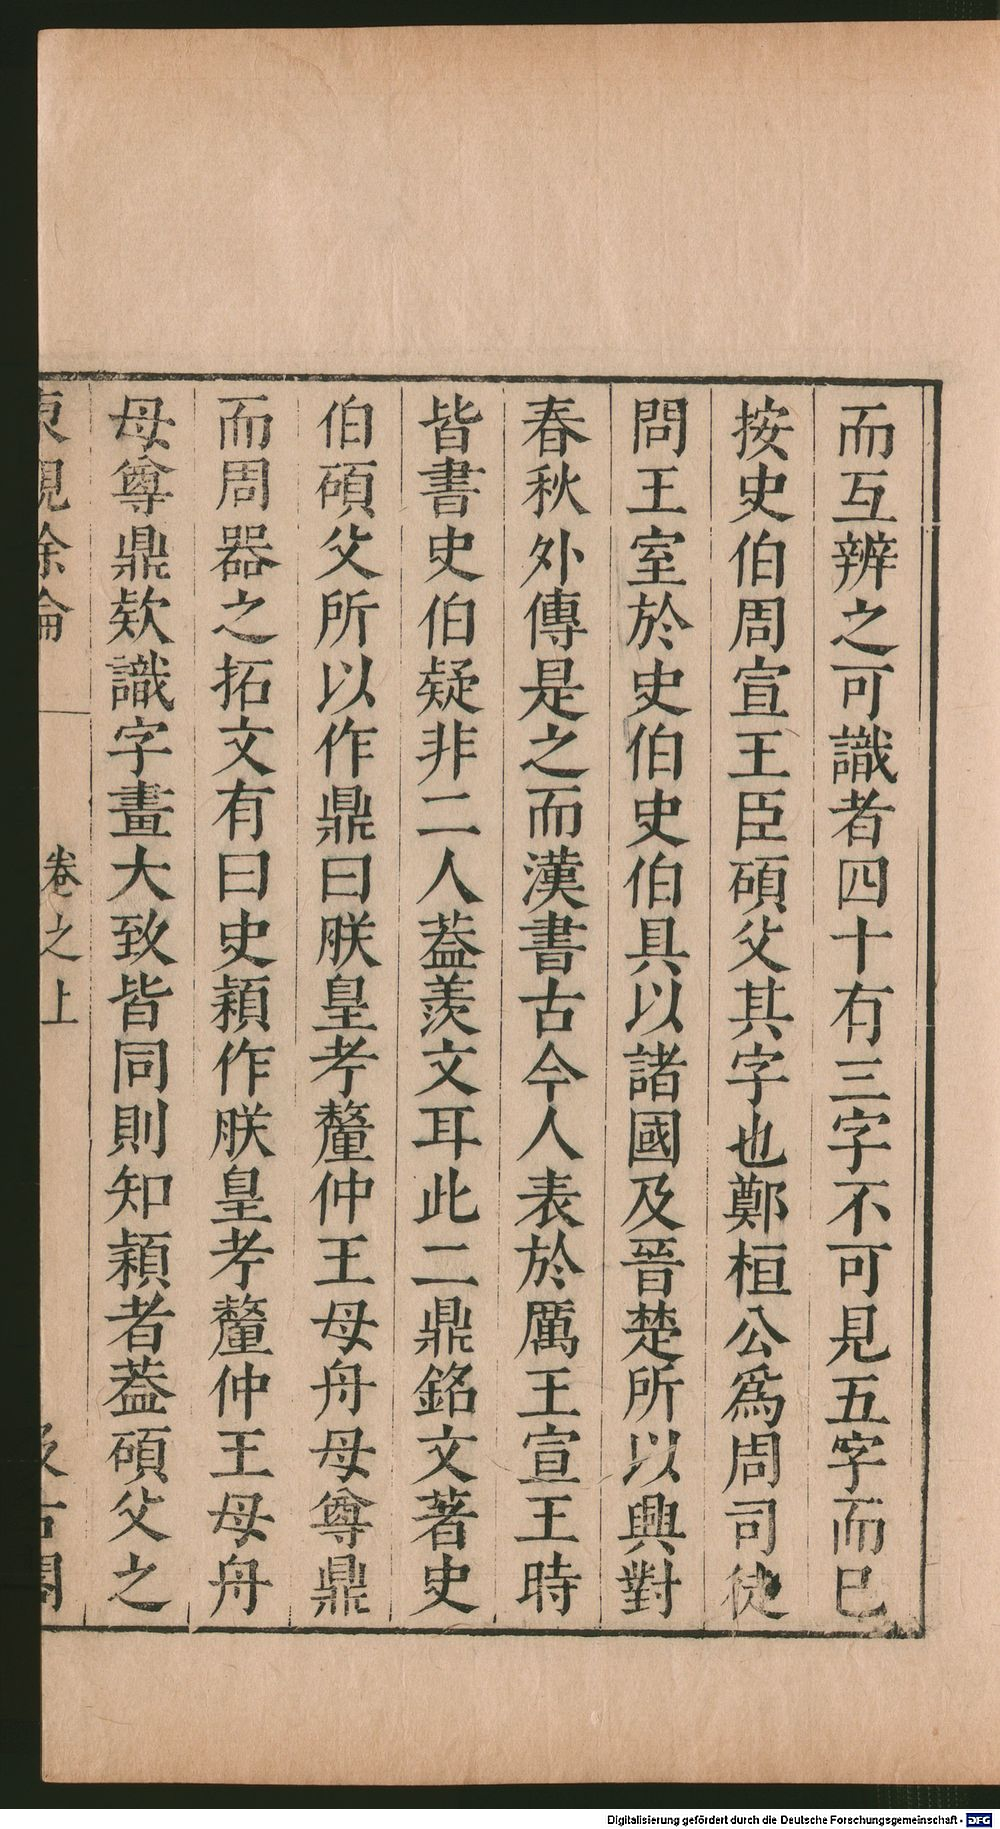 而互辨之可識者四十有三字不可見五字而已
按史伯周宣王臣碩父其字也鄭桓公爲周司徒
問王室於史伯史伯具以諸國及晉楚所以興對
春秋外傳是之而漢書古今人表於厲王宣王時
皆書史伯疑非二人葢羨文耳此二鼎銘文著史
伯碩父所以作鼎曰朕皇考釐仲王母舟母尊鼎
而周器之拓文有曰史穎作朕皇考釐仲王母舟
母尊鼎欵識字畫大致皆同則知穎者葢碩父之
東觀餘論 卷之上 汲古閣
Digitalisierung gefördert durch die Deutsche Forschungsgemeinschaft - DFG